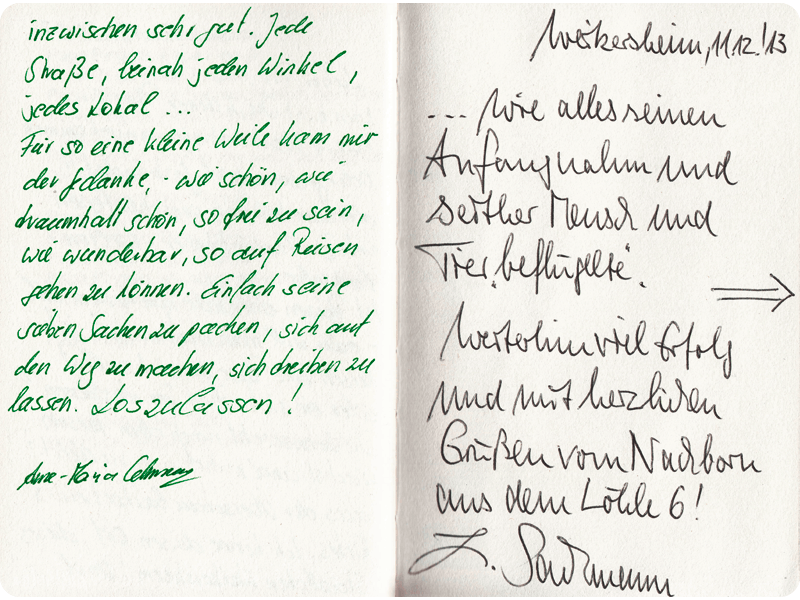 inzwischen sehr gut. Jede
Straße, beinah jeden Winkel,
jedes Lokal ...
Für so eine kleine Weile kam mir
der Gedanke, - wie schön, wie
traumhaft schön, so frei zu sein,
wie wunderbar, so auf Reisen
gehen zu können. Einfach seine
sieben Sachen zu packen, sich auf
den Weg zu machen, sich treiben zu
lassen. Loszulassen!
Anne-Maria
Weikersheim, 11.12.!13
... wie alles seinen
Anfang nahm und
seither Mensch und
Tier "beflügelte".
Weiterhin viel Erfolg
und mit herzlichen
Grüßen vom Nachbarn
aus dem Löhle 6!